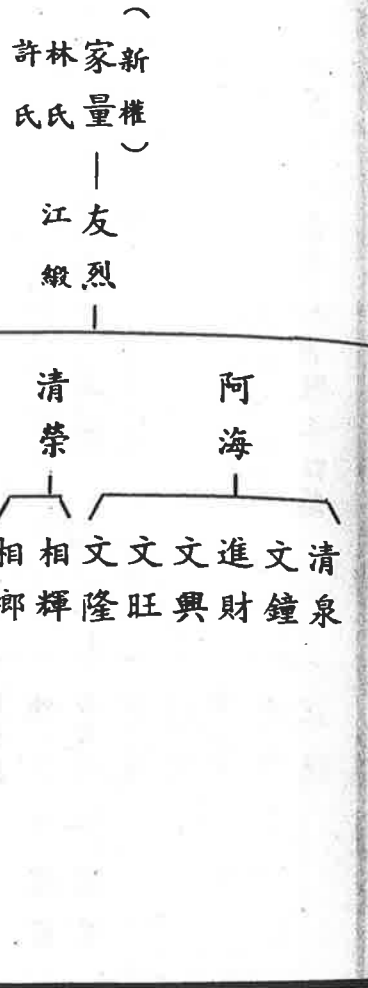 （新權）
家量
林氏
許氏
友烈
江緞
阿海
清榮
清泉
文鐘
進財
文興
文旺
文隆
相輝
相